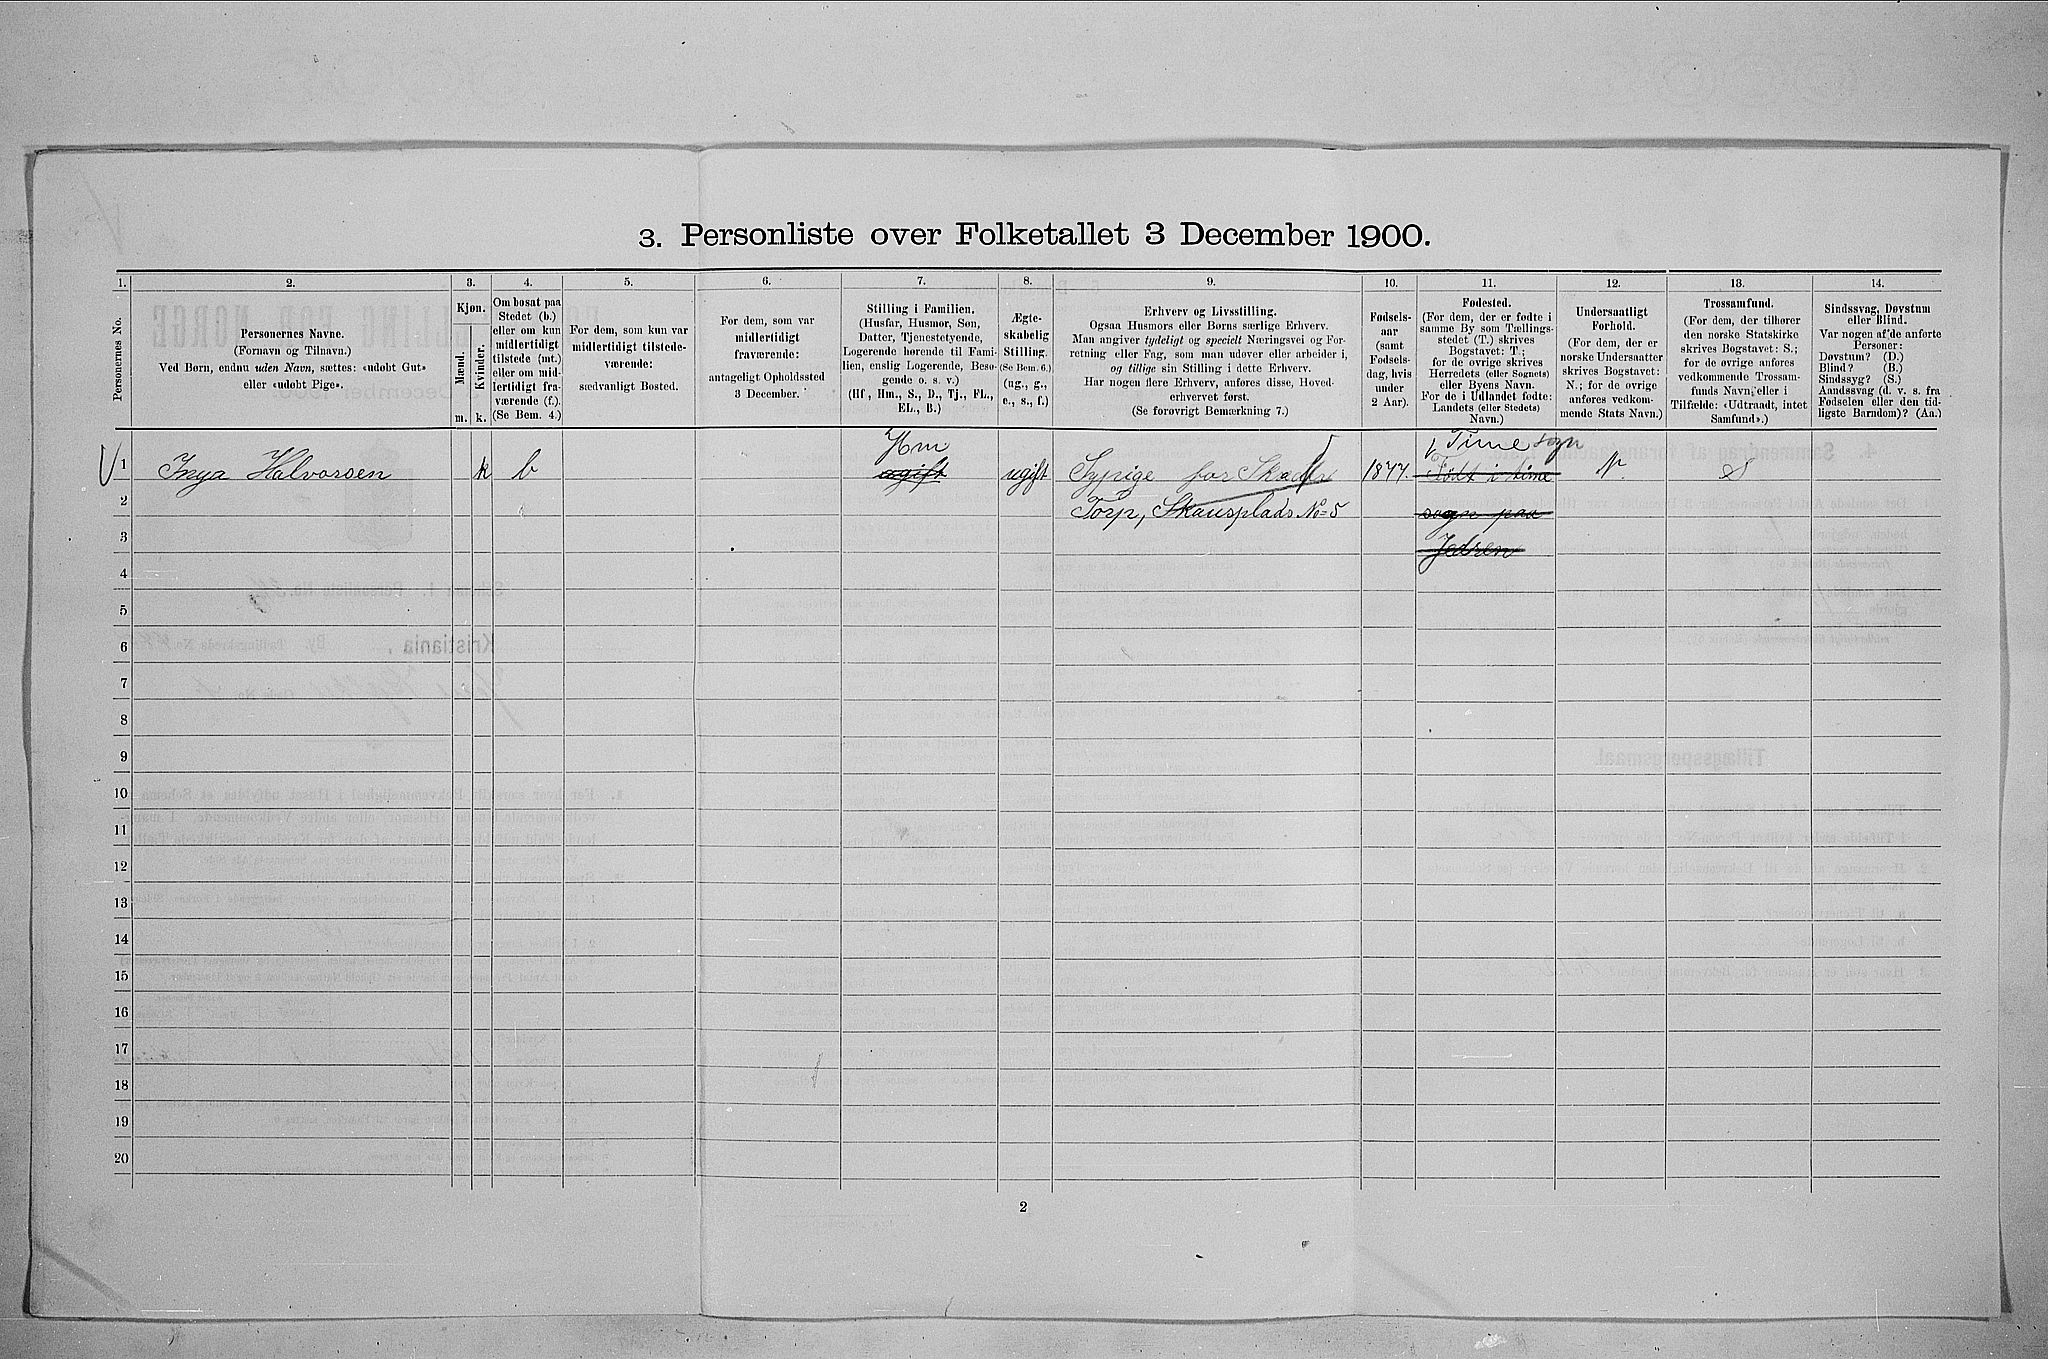 3. Personliste over Folketallet 3 December 1900.
1. 2. 3. 4. 5. 6. 7. 8. 9. 10. 11. 12. 13. 14.
Personernes No.
Personernes Navne.
(Fornavn og Tilnavn.)
Ved Børn, endnu uden Navn, sættes: «udøbt Gut»
eller «udøbt Pige».
Kjøn.
Mænd.
Kvinder.
m. k.
Om bosat paa
Stedet (b.)
eller om kun
midlertidigt
tilstede (mt.)
eller om mid-
lertidigt fra-
værende (f.).
(Se Bem. 4.)
For dem, som kun var
midlertidigt tilstede-
værende:
sædvanligt Bosted.
For dem, som var
midlertidigt
fraværende:
antageligt Opholdssted
3 December.
Stilling i Familien.
(Husfar, Husmor, Søn,
Datter, Tjenestetyende,
Logerende hørende til Fami-
lien, enslig Logerende, Besø-
gende o. s. v.)
(Hf, Hm., S., D., Tj., FL.,
EL., B.)
Ægte-
skabelig
Stilling.
(Se Bem. 6.)
(ug., g.,
e., s., f.)
Erhverv og Livsstilling.
Ogsaa Husmors eller Børns særlige Erhverv.
Man angiver tydeligt og specielt Næringsvei og For-
retning eller Fag, som man udøver eller arbeider i,
og tillige sin Stilling i dette Erhverv.
Har nogen flere Erhverv, anføres disse, Hoved-
erhvervet først.
(Se forøvrigt Bemærkning 7.)
Fødsels-
aar
(samt
Fødsels-
dag, hvis
under
2 Aar).
Fødested.
(For dem, der er fødte i
samme By som Tællings-
stedet (T.) skrives
Bogstavet: T.;
for de øvrige skrives
Herredets (eller Sognets)
eller Byens Navn.
For de i Udlandet fødte:
Landets (eller Stedets)
Navn.)
Undersaatligt
Forhold.
(For dem, der er
norske Undersaatter
skrives Bogstavet:
N.; for de øvrige
anføres vedkom-
mende Stats Navn.)
Trossamfund.
(For dem, der tilhører
den norske Statskirke
skrives Bogstavet: S.;
for de øvrige anføres
vedkommende Trossam-
funds Navn, eller i
Tilfælde: «Udtraadt, intet
Samfund».)
Sindssvag, Døvstum
eller Blind.
Var nogen af de anførte
Personer:
Døvstum? (D.)
Blind? (B.)
Sindssyg? (S.)
Aandssvag (d. v. s. fra
Fødselen eller den tid-
ligste Barndom)? (Aa.)
Hm Time sogn
1 Inga Halvorsen k b ugift ugift Sypige for 1877. Født i time N. S
2 Torp, Skausplads No 5 sogn paa
3 Jedren
4
5
6
7
8
9
10
11
12
13
14
15
16
17
18
19
20
2